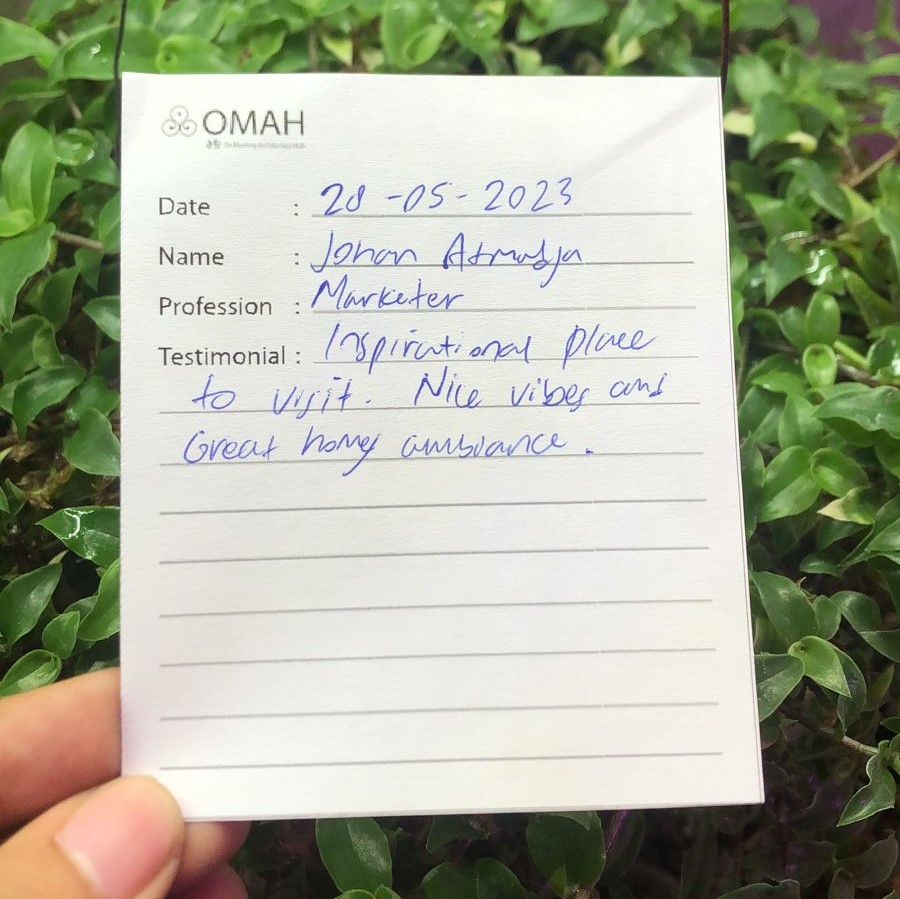 OMAH
Date : 28-05-2023
Name : Johan Atmadja
Profession : Marketer
Testimonial : Inspirational place
to visit. Nice vibes and
Great homy ambiance.